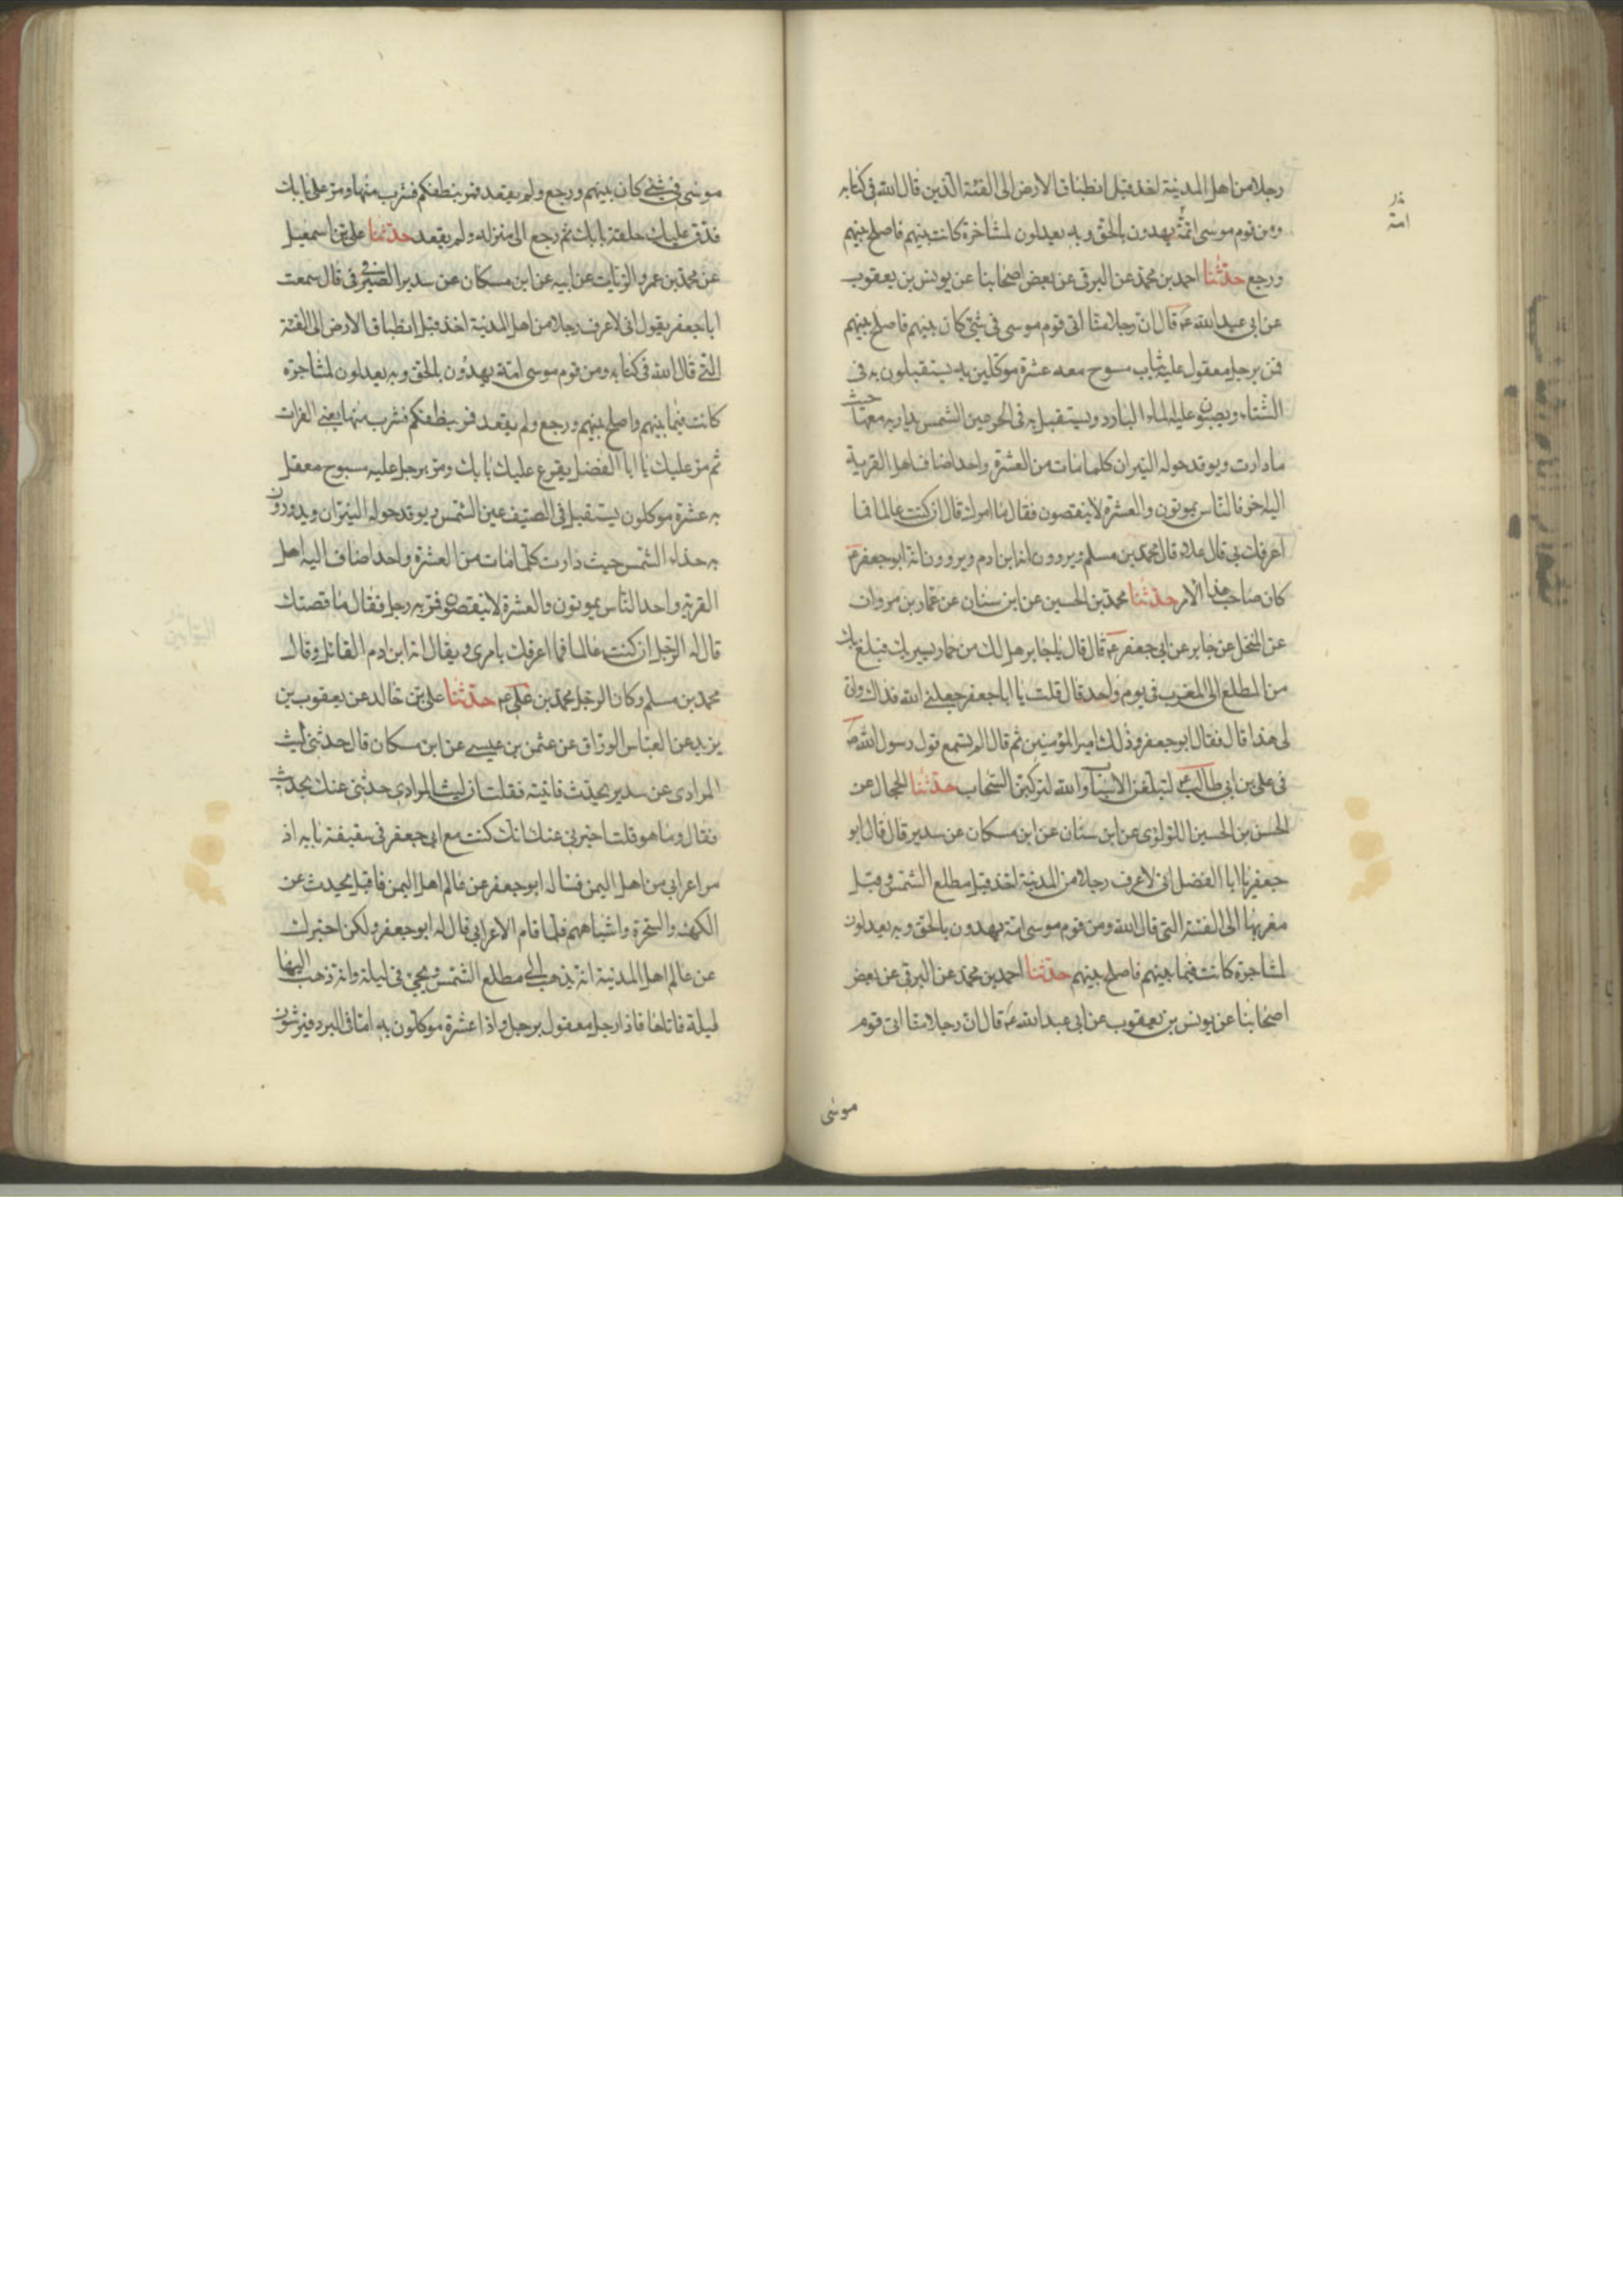 رجلا من اهل المدينة اخذ قبل انطباق الارض الى الفئة الذين قال الله فى كتابه
ومن قوم موسى ائمة يهدون بالحق وبه يعدلون لمشاخرة كانت بينهم فاصلح بينهم
ورجع حدثنا احمد بن محمد عن البرقى عن بعض اصحابنا عن يونس بن يعقوب
عن ابى عبد الله ع قال ان رجلا منا اتى قوم موسى فى شئ كان بينهم فاصلح بينهم
فمر برجل معقول عليه ثياب مسوح معه عشرة موكلين به يستقبلون به فى
الشتاء ويصبون عليه الماء البارد ويستقبل به فى الحر عين الشمس يدار به معها حيث
ما دارت ويوقد حوله النيران كلما مات من العشرة واحد اضاف اهل القرية
اليه اخر فالناس يموتون والعشرة لا ينقصون فقال ما امرك قال ان كنت عالما فما
اعرفك بى قال علاء قال محمد بن مسلم ويروون انه ابن ادم ويروون انه ابو جعفر ع
كان صاحب هذا الامر حدثنا محمد بن الحسين عن ابن سنان عن عمار بن مروان
عن المنخل عن جابر عن ابى جعفر ع قال قال يا جابر هل لك من حمار يسير بك فيبلغ بك
من المطلع الى المغرب فى يوم واحد قال قلت يا ابا جعفر جعلنى الله فداك وانى
لى هذا قال فقال ابو جعفر وذلك امير المؤمنين ثم قال الم تسمع قول رسول الله ص
فى على بن ابى طالب ع لتبلغن الاسباب والله لتركبن السحاب حدثنا الحجال عن
الحسن بن الحسين اللولوى عن ابن سنان عن ابن مسكان عن سدير قال قال ابو
جعفر يا ابا الفضل انى لاعرف رجلا من المدينة اخذ قبل مطلع الشمس وقبل
مغربها الى الفئة التى قال الله ومن قوم موسى امة يهدون بالحق وبه يعدلون
لمشاجرة كانت فيما بينهم فاصلح بينهم حدثنا احمد بن محمد عن البرقى عن بعض
اصحابنا عن يونس بن يعقوب عن ابى عبد الله ع قال ان رجلا منا اتى قوم
موسى
امة
موسى فى شئ كان بينهم ورجع ولم يقعد فمر بنطفكم فشرب منها ومر على بابك
فدق عليك حلقة بابك ثم رجع الى منزله ولم يقعد حدثنا على بن اسمعيل
عن محمد بن عمرو الزيات عن ابيه عن ابن مسكان عن سدير الصيرفى قال سمعت
ابا جعفر يقول انى لاعرف رجلا من اهل المدينة اخذ قبل انطباق الارض الى الفئة
التى قال الله فى كتابه ومن قوم موسى امة يهدون بالحق وبه يعدلون لمشاجرة
كانت فيما بينهم واصلح بينهم ورجع ولم يقعد فمر بنطفكم فشرب منها يعنى الفرات
ثم مر عليك يا ابا الفضل يقرع عليك بابك ومر برجل عليه مسوح معقل
به عشرة موكلون يستقبل فى الصيف عين الشمس ويوقد حوله النيران ويدورون
به حذاء الشمس حيث دارت كلما مات من العشرة واحد اضاف اليه اهل
القرية واحد الناس يموتون والعشرة لا ينقصون فمر به رجل فقال ما قصتك
قال له الرجل ان كنت عالما فما اعرفك بامرى ويقال انه ابن ادم القاتل وقال
محمد بن مسلم وكان الرجل محمد بن على ع حدثنا على بن خالد عن يعقوب بن
يزيد عن العباس الوراق عن عثمن بن عيسى عن ابن مسكان قال حدثنى ليث
المرادى عن سدير بحديث فاتيته فقلت ان ليث المرادى حدثنى عنك بحديث
فقال وما هو قلت اخبرنى عنك انك كنت مع ابى جعفر فى سقيفة بابه اذ
مر اعرابى من اهل اليمن فساله ابو جعفر عن عالم اهل اليمن فاقبل يحدث عن
الكهنه والسحرة واشباههم فلما قام الاعرابى قال له ابو جعفر ولكن اخبرك
عن عالم اهل المدينة انه يذهب الى مطلع الشمس ويجئ فى ليلة وانه ذهب اليها
ليلة فاتاها فاذا رجل معقول برجل واذا عشرة موكلون به اما فى البرد فيرشون